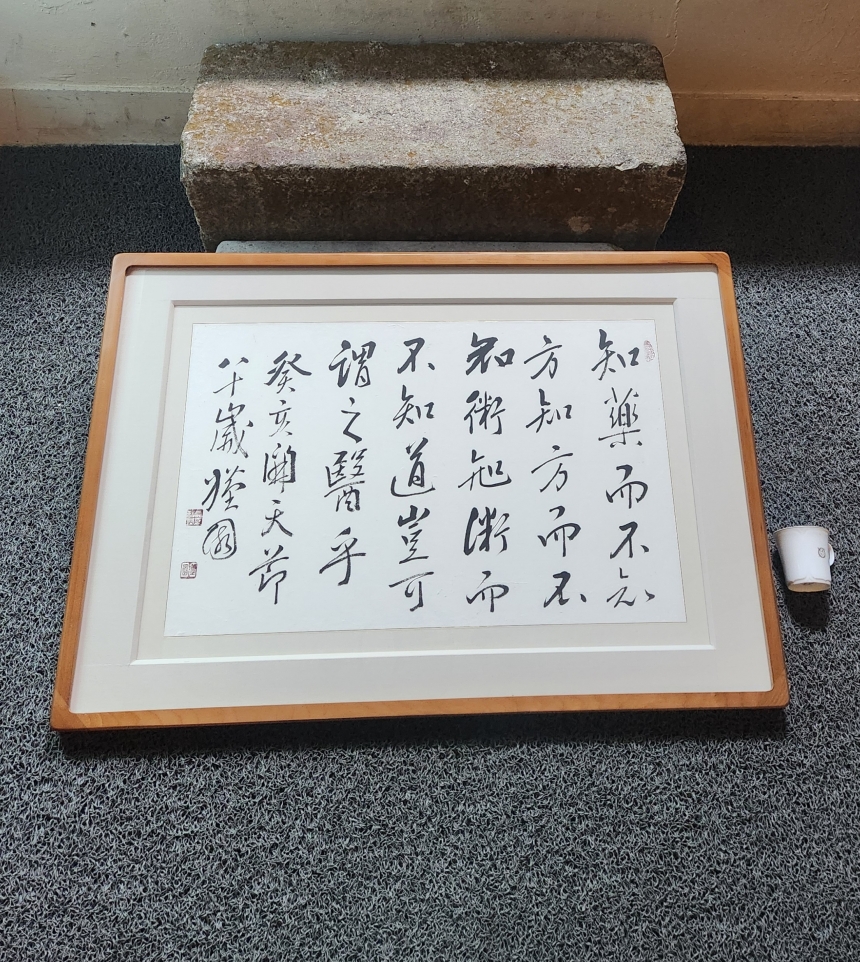 知藥而不知
方知方而不
知術知術而
不知道豈可
謂之醫乎
癸亥開天節
八十歲